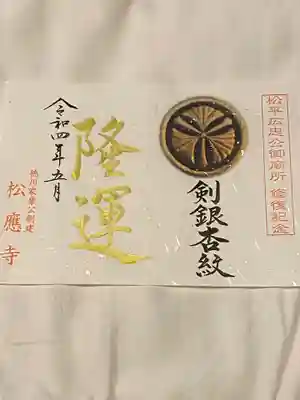 松平広忠公御廟所 修復記念
剣銀杏紋
隆運
令和四年五月
徳川家康公創建
松應寺